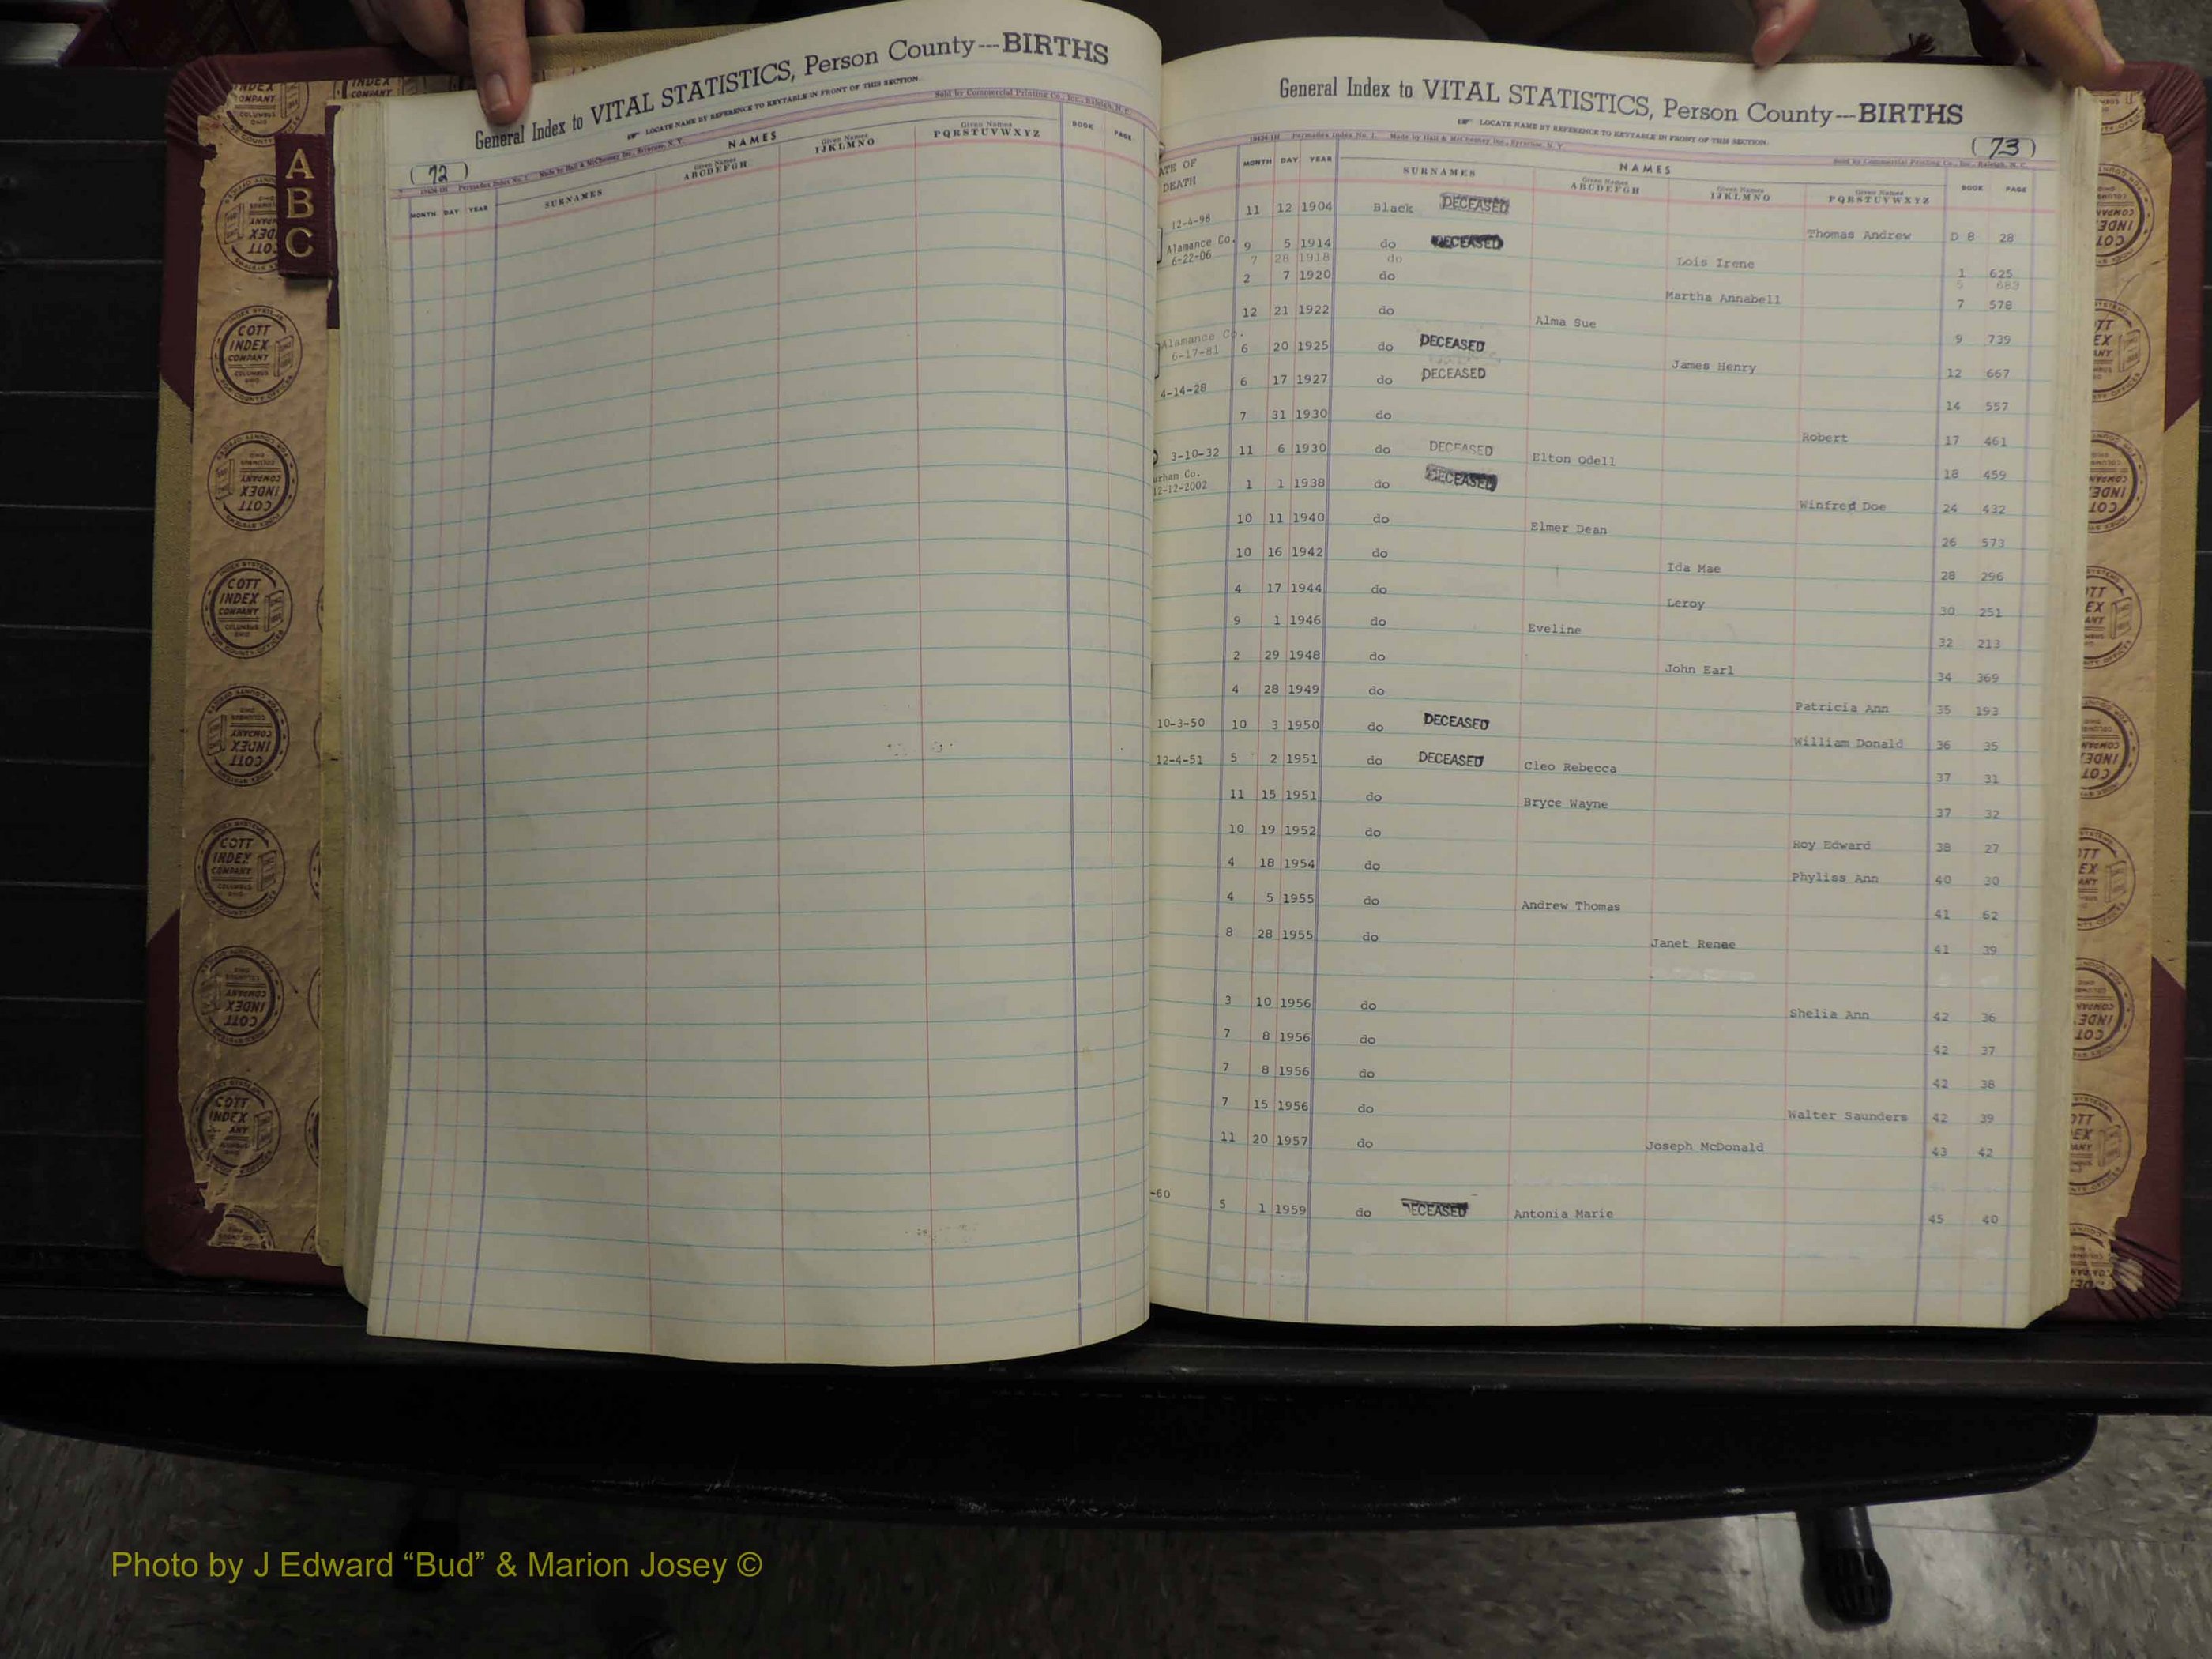 General Index to VITAL STATISTICS, Person County---BIRTHS
LOCATE NAME BY REFERENCE TO KEYTABLE IN FRONT OF THIS SECTION.
( 72 )
Sold by Commercial Printing Co., Inc., Raleigh, N. C.
NAMES
MONTH DAY YEAR SURNAMES Given Names ABCDEFGH Given Names IJKLMNO Given Names PQRSTUVWXYZ BOOK PAGE
A
B
C
COTT
INDEX
COMPANY
COLUMBUS
OHIO
General Index to VITAL STATISTICS, Person County---BIRTHS
LOCATE NAME BY REFERENCE TO KEYTABLE IN FRONT OF THIS SECTION.
( 73 )
Sold by Commercial Printing Co., Inc., Raleigh, N. C.
NAMES
DEATH MONTH DAY YEAR SURNAMES Given Names ABCDEFGH Given Names IJKLMNO Given Names PQRSTUVWXYZ BOOK PAGE
12-4-98 11 12 1904 Black DECEASED Thomas Andrew D 8 28
Alamance Co. 6-22-06 9 5 1914 do DECEASED Lois Irene 1 625
7 28 1918 do 5 683
2 7 1920 do Martha Annabell 7 578
12 21 1922 do Alma Sue 9 739
Alamance Co. 6-17-81 6 20 1925 do DECEASED James Henry 12 667
4-14-28 6 17 1927 do DECEASED 14 557
7 31 1930 do Robert 17 461
3-10-32 11 6 1930 do DECEASED Elton Odell 18 459
12-12-2002 1 1 1938 do DECEASED Winfred Doe 24 432
10 11 1940 do Elmer Dean 26 573
10 16 1942 do Ida Mae 28 296
4 17 1944 do Leroy 30 251
9 1 1946 do Eveline 32 213
2 29 1948 do John Earl 34 369
4 28 1949 do Patricia Ann 35 193
10-3-50 10 3 1950 do DECEASED William Donald 36 35
12-4-51 5 2 1951 do DECEASED Cleo Rebecca 37 31
11 15 1951 do Bryce Wayne 37 32
10 19 1952 do Roy Edward 38 27
4 18 1954 do Phyliss Ann 40 30
4 5 1955 do Andrew Thomas 41 62
8 28 1955 do Janet Renee 41 39
3 10 1956 do Shelia Ann 42 36
7 8 1956 do 42 37
7 8 1956 do 42 38
7 15 1956 do Walter Saunders 42 39
11 20 1957 do Joseph McDonald 43 42
-60 5 1 1959 do DECEASED Antonia Marie 45 40
Photo by J Edward “Bud” & Marion Josey ©